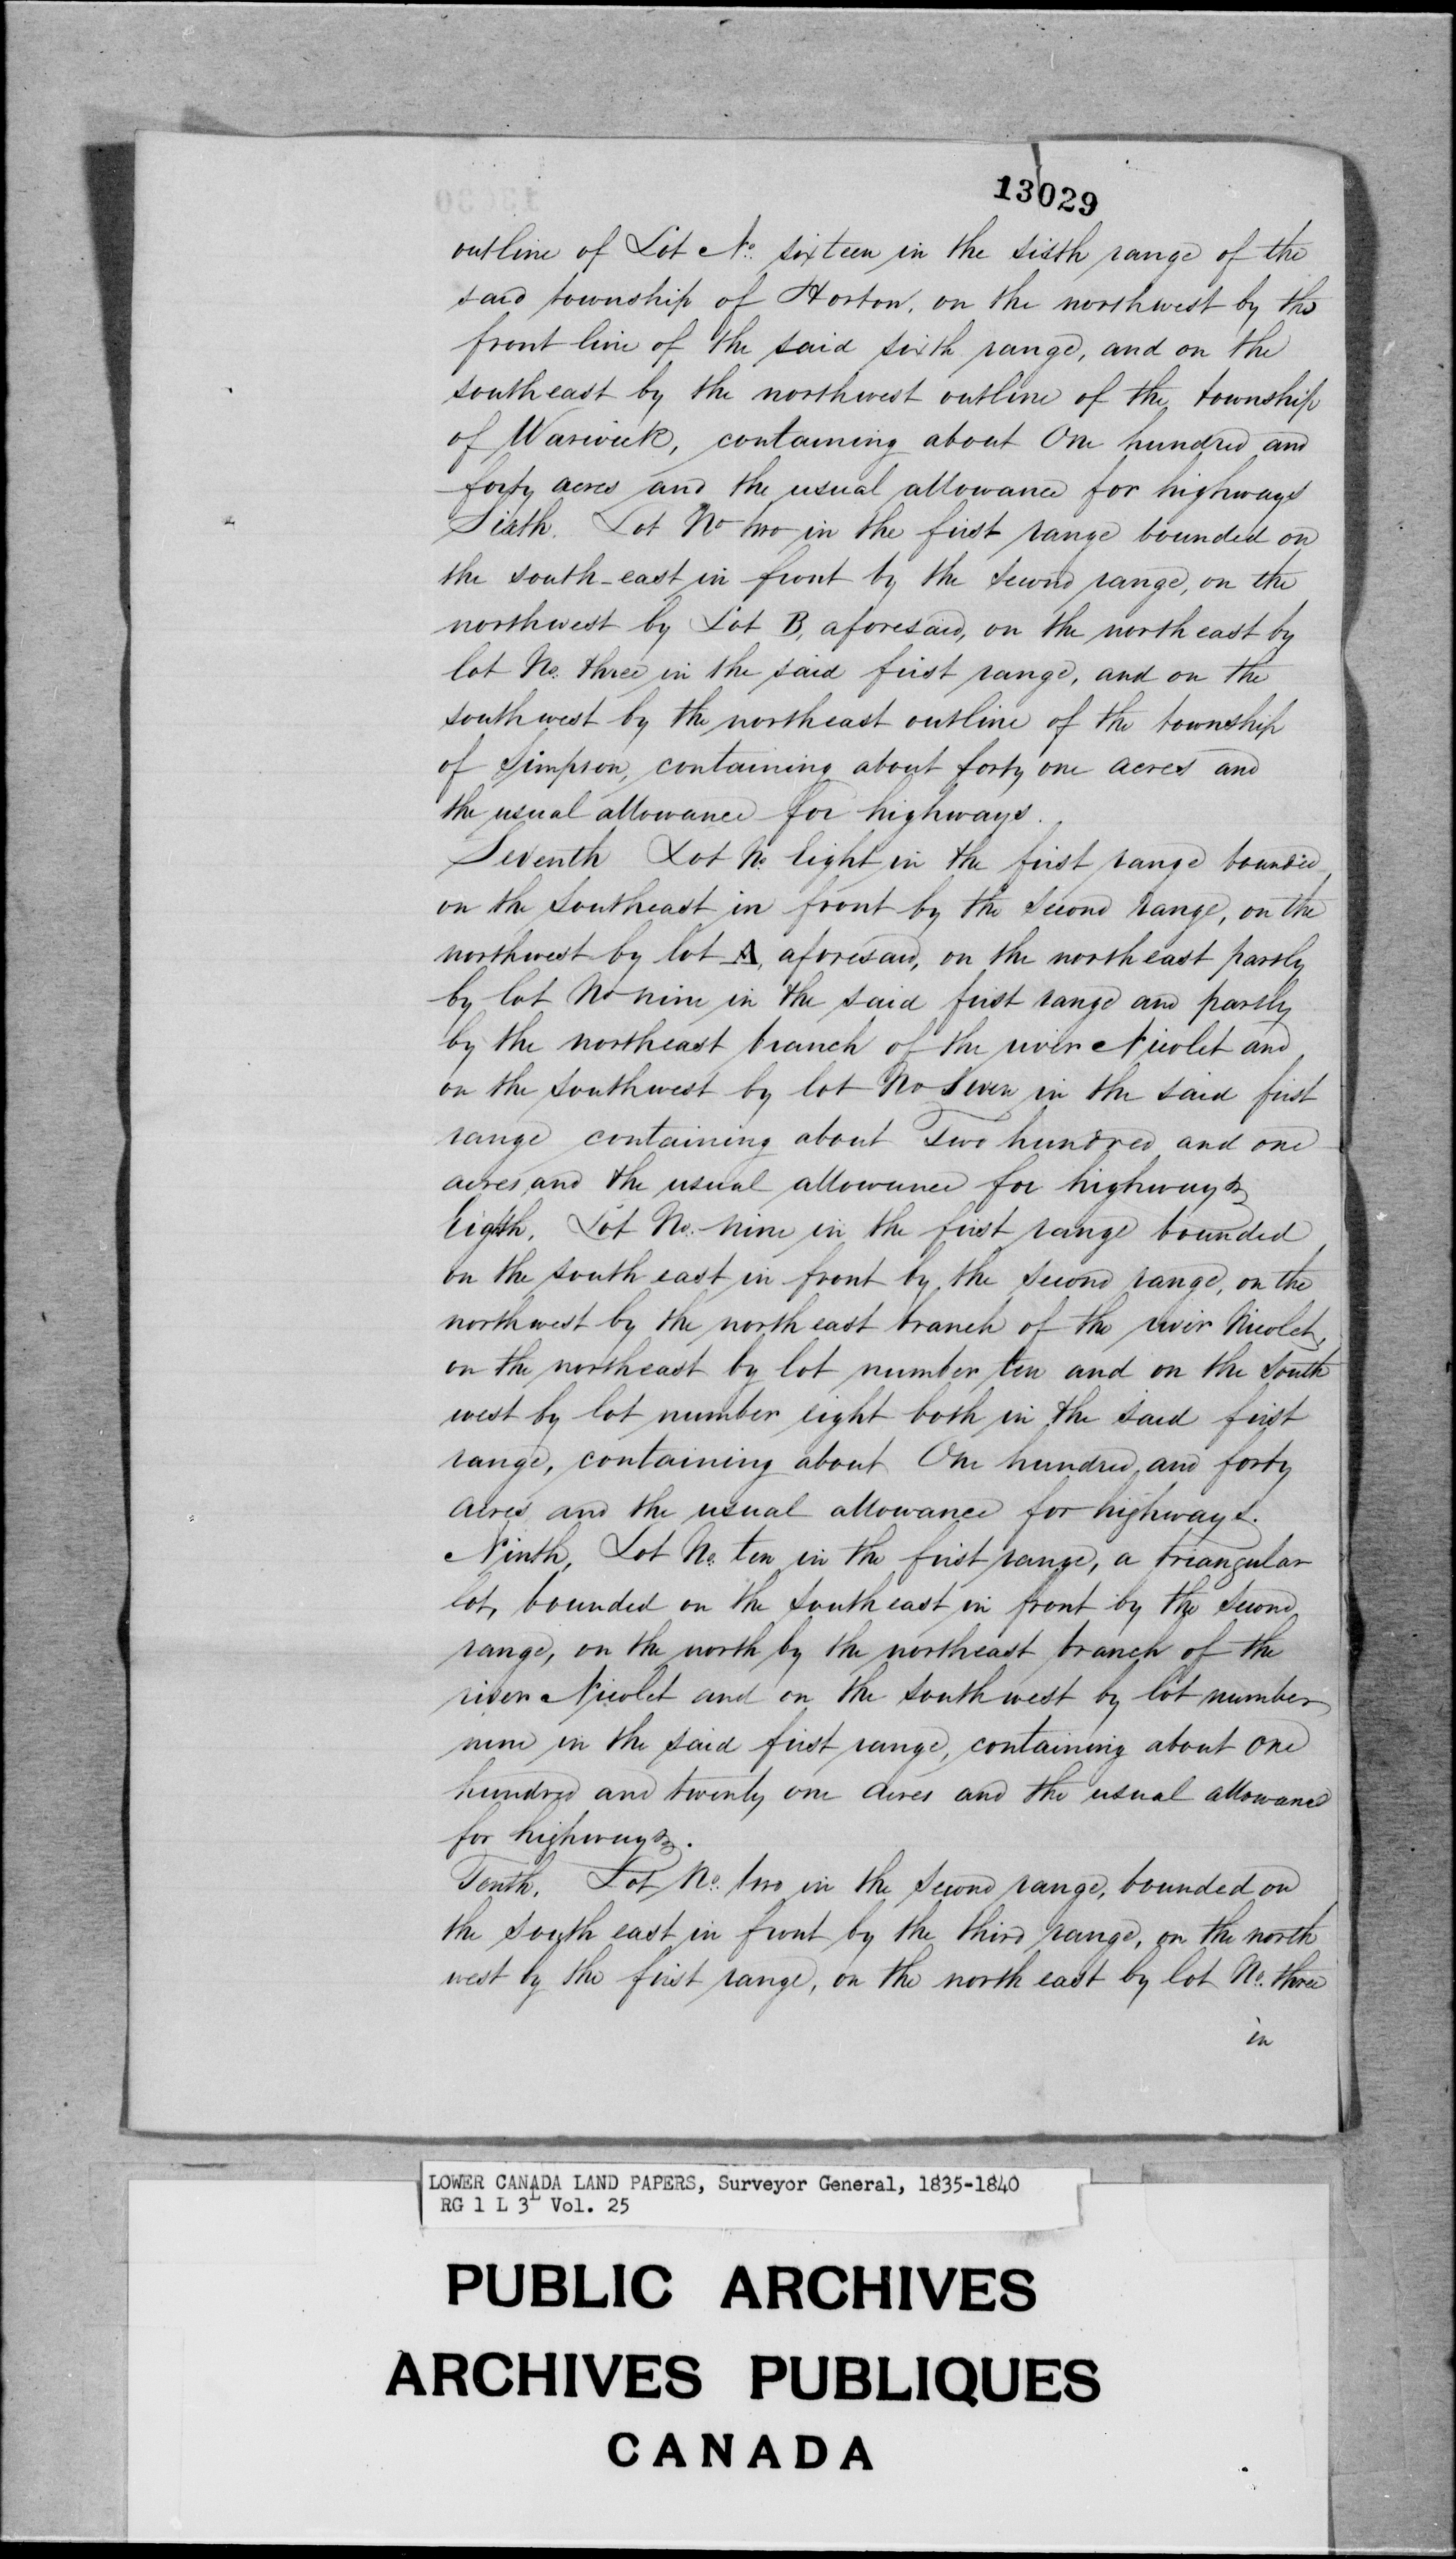 13029
outline of Lot No. sixteen in the sixth range of the
said township of Horton, on the northwest by the
front line of the said sixth range, and on the
southeast by the northwest outline of the township
of Warwick, containing about One hundred and
forty acres and the usual allowance for highways
Sixth. Lot No two in the first range bounded on
the south-east in front by the second range, on the
northwest by Lot B, aforesaid, on the north east by
lot No. three in the said first range, and on the
southwest by the northeast outline of the township
of Simpson, containing about forty one acres and
the usual allowance for highways.
Seventh Lot No. Eight in the first range bounded
on the southeast in front by the second range, on the
northwest by lot A, aforesaid, on the north east partly
by lot No nine in the said first range and partly
by the northeast branch of the river Nicolet and
on the southwest by lot No Seven in the said first
range containing about Two hundred and one
acres, and the usual allowance for highways
Eighth. Lot No. nine in the first range bounded
on the south east in front by the second range, on the
northwest by the north east branch of the river Nicolet,
on the northeast by lot number ten and on the South
west by lot number eight both in the said first
range, containing about One hundred and forty
acres and the usual allowance for highways.
Ninth, Lot No. ten in the first range, a triangular
lot, bounded on the south east in front by the second
range, on the north by the northeast branch of the
river Nicolet and on the southwest by lot number
nine in the said first range, containing about one
hundred and twenty one acres and the usual allowance
for highways.
Tenth, Lot No. two in the second range, bounded on
the south east in front by the third range, on the north
west by the first range, on the north east by lot No. three
in
LOWER CANADA LAND PAPERS, Surveyor General, 1835-1840
RG 1 L 3L Vol. 25
PUBLIC ARCHIVES
ARCHIVES PUBLIQUES
CANADA